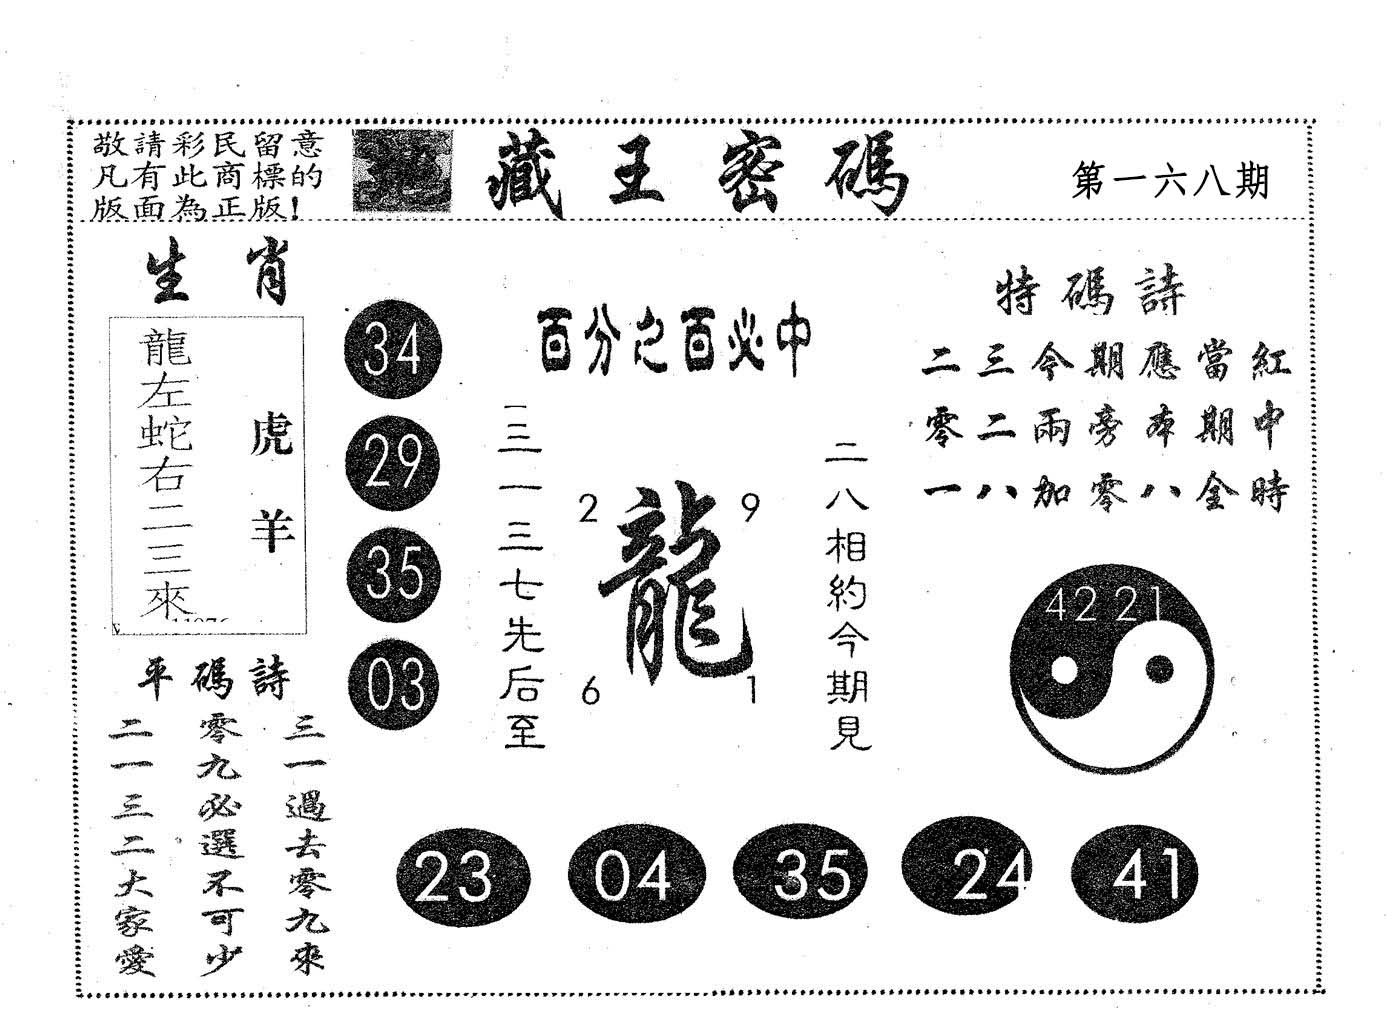 敬請彩民留意
凡有此商標的
版面為正版!
地藏王密碼
第一六八期
生肖
龍左蛇右二三來
虎羊
34
29
35
03
百分之百必中
二三一三七先后至
2
9
龍
6
1
二八相約今期見
特碼詩
二三今期應當紅
零二兩旁本期中
一八加零八全時
42 21
平碼詩
三一過去零九來
零九必選不可少
二一三二大家愛
23
04
35
24
41